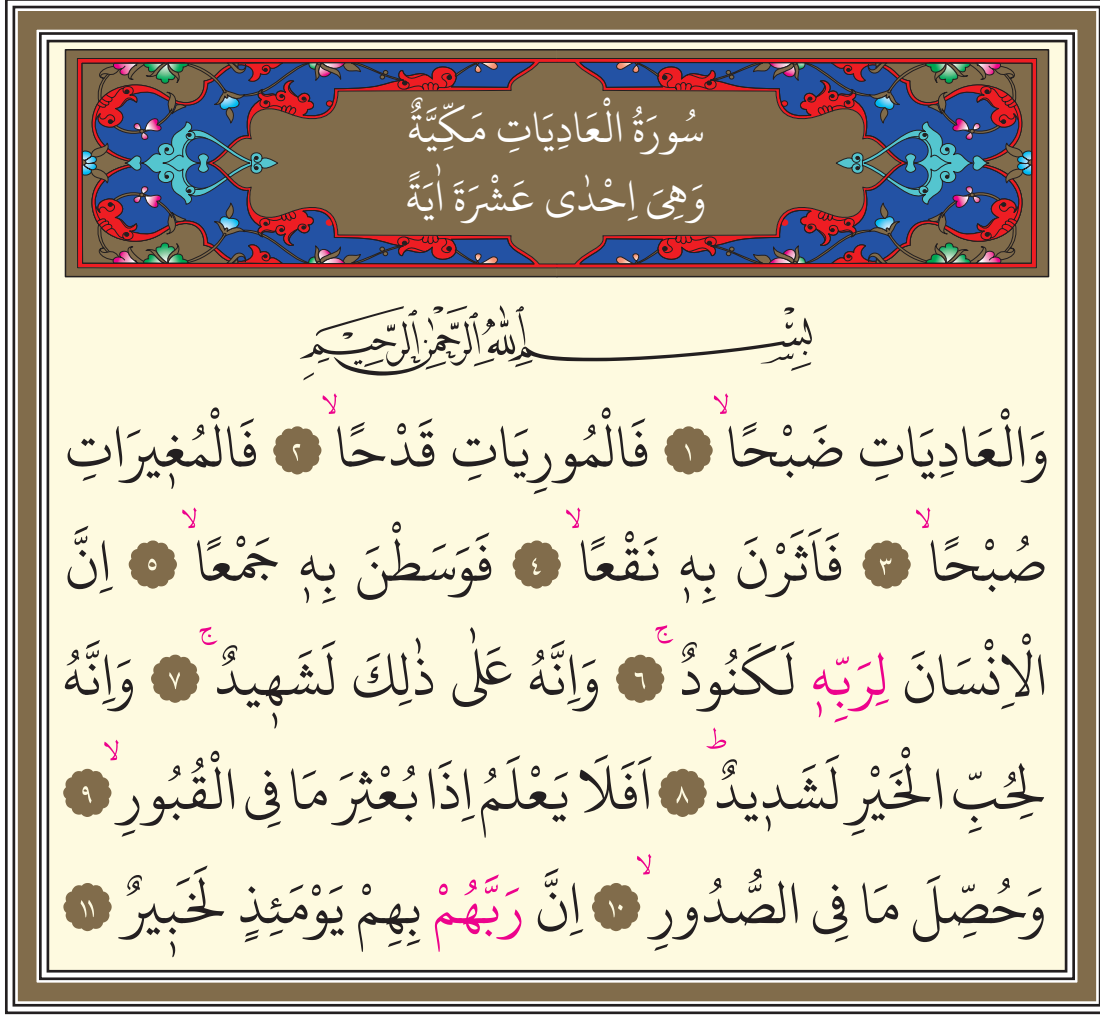 سُورَةُ الْعَادِيَاتِ مَكِّيَّةٌ
وَهِيَ اِحْدٰى عَشْرَةَ اٰيَةً
بِسْمِ اللّٰهِ الرَّحْمٰنِ الرَّحِيمِ
وَالْعَادِيَاتِ ضَبْحًاۙ ﴿١﴾ فَالْمُورِيَاتِ قَدْحًاۙ ﴿٢﴾ فَالْمُغ۪يرَاتِ
صُبْحًاۙ ﴿٣﴾ فَاَثَرْنَ بِه۪ نَقْعًاۙ ﴿٤﴾ فَوَسَطْنَ بِه۪ جَمْعًاۙ ﴿٥﴾ اِنَّ
الْاِنْسَانَ لِرَبِّه۪ لَكَنُودٌۚ ﴿٦﴾ وَاِنَّهُ عَلٰى ذٰلِكَ لَشَه۪يدٌۚ ﴿٧﴾ وَاِنَّهُ
لِحُبِّ الْخَيْرِ لَشَد۪يدٌۜ ﴿٨﴾ اَفَلَا يَعْلَمُ اِذَا بُعْثِرَ مَا فِى الْقُبُورِۙ ﴿٩﴾
وَحُصِّلَ مَا فِى الصُّدُورِۙ ﴿١٠﴾ اِنَّ رَبَّهُمْ بِهِمْ يَوْمَئِذٍ لَخَب۪يرٌ ﴿١١﴾